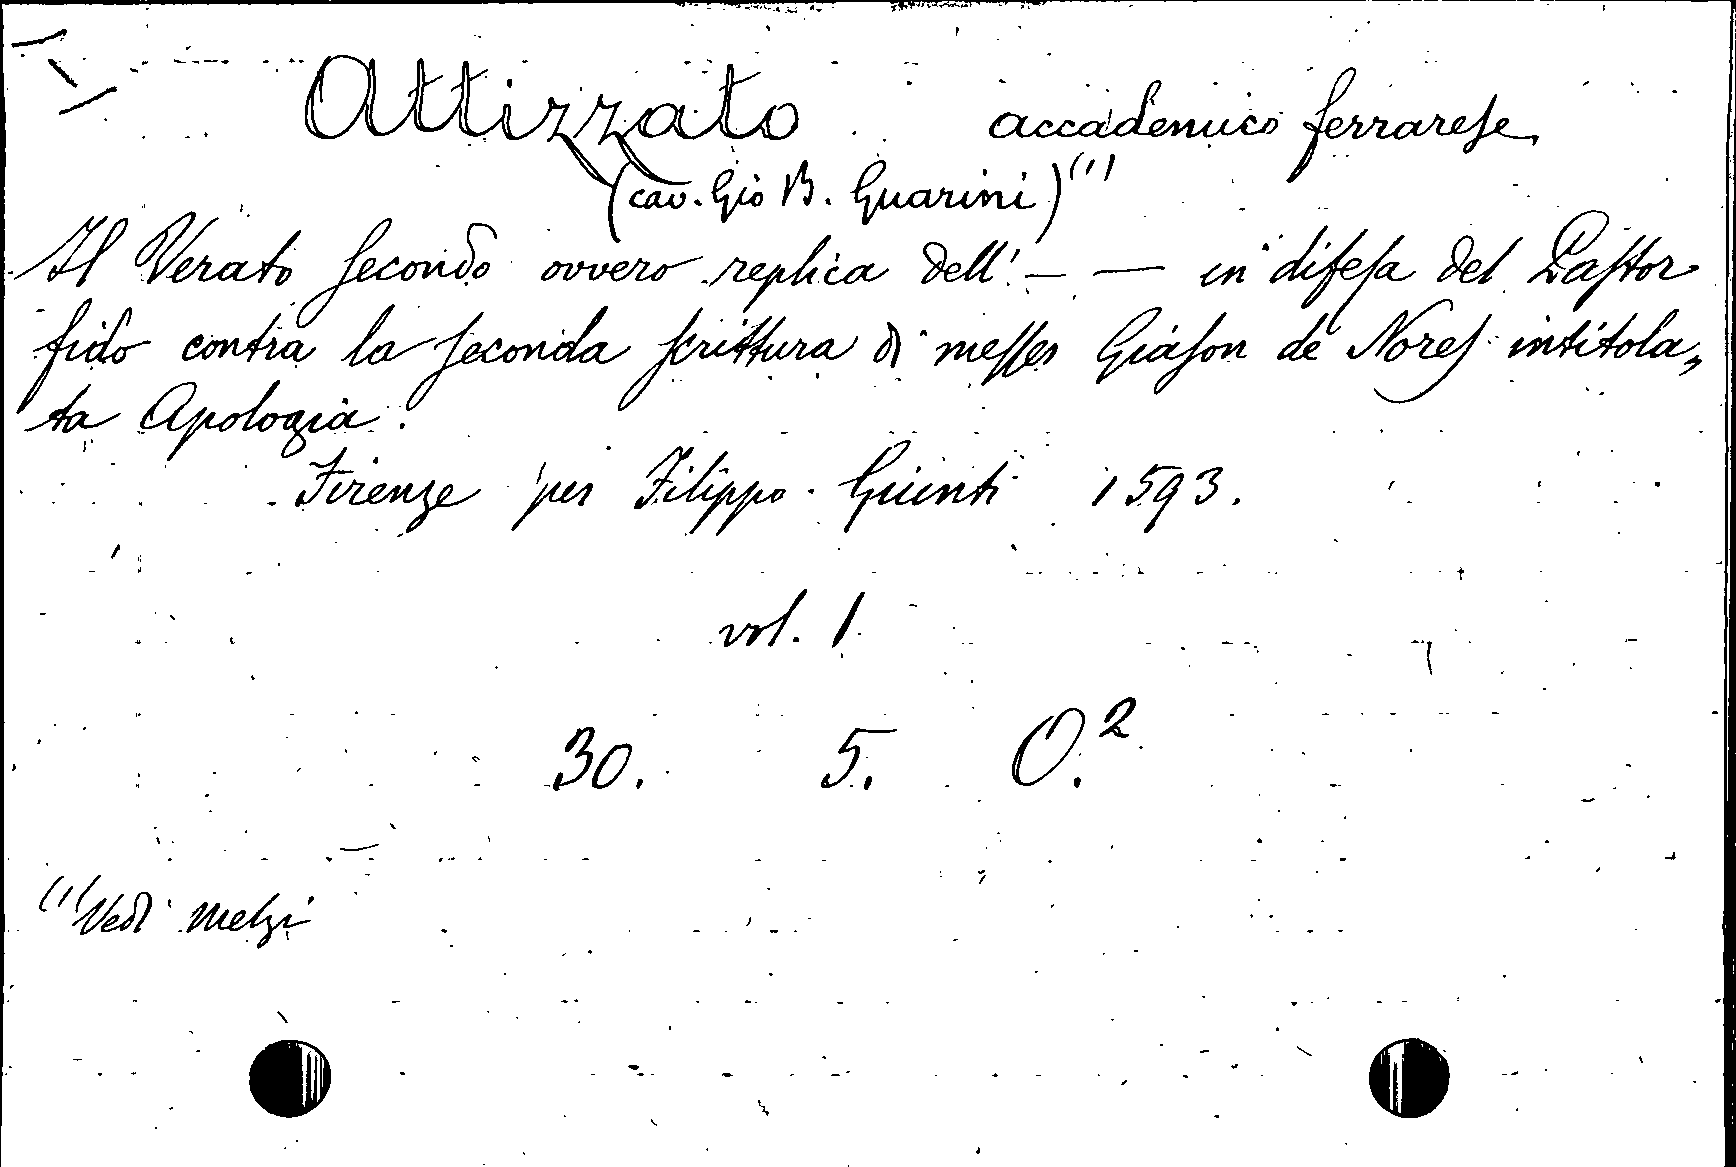 Attizzato accademico ferrarese
(cav. Gio B. Guarini) (1)
Il Verato secondo ovvero replica dell' — — in difesa del Pastor
fido contra la seconda scrittura di messer Giason de Nores intitola„
ta Apologia.
Firenze per Filippo Giunti 1593.
vol. 1
30. 5. O.2
(1) Vedi Melzi